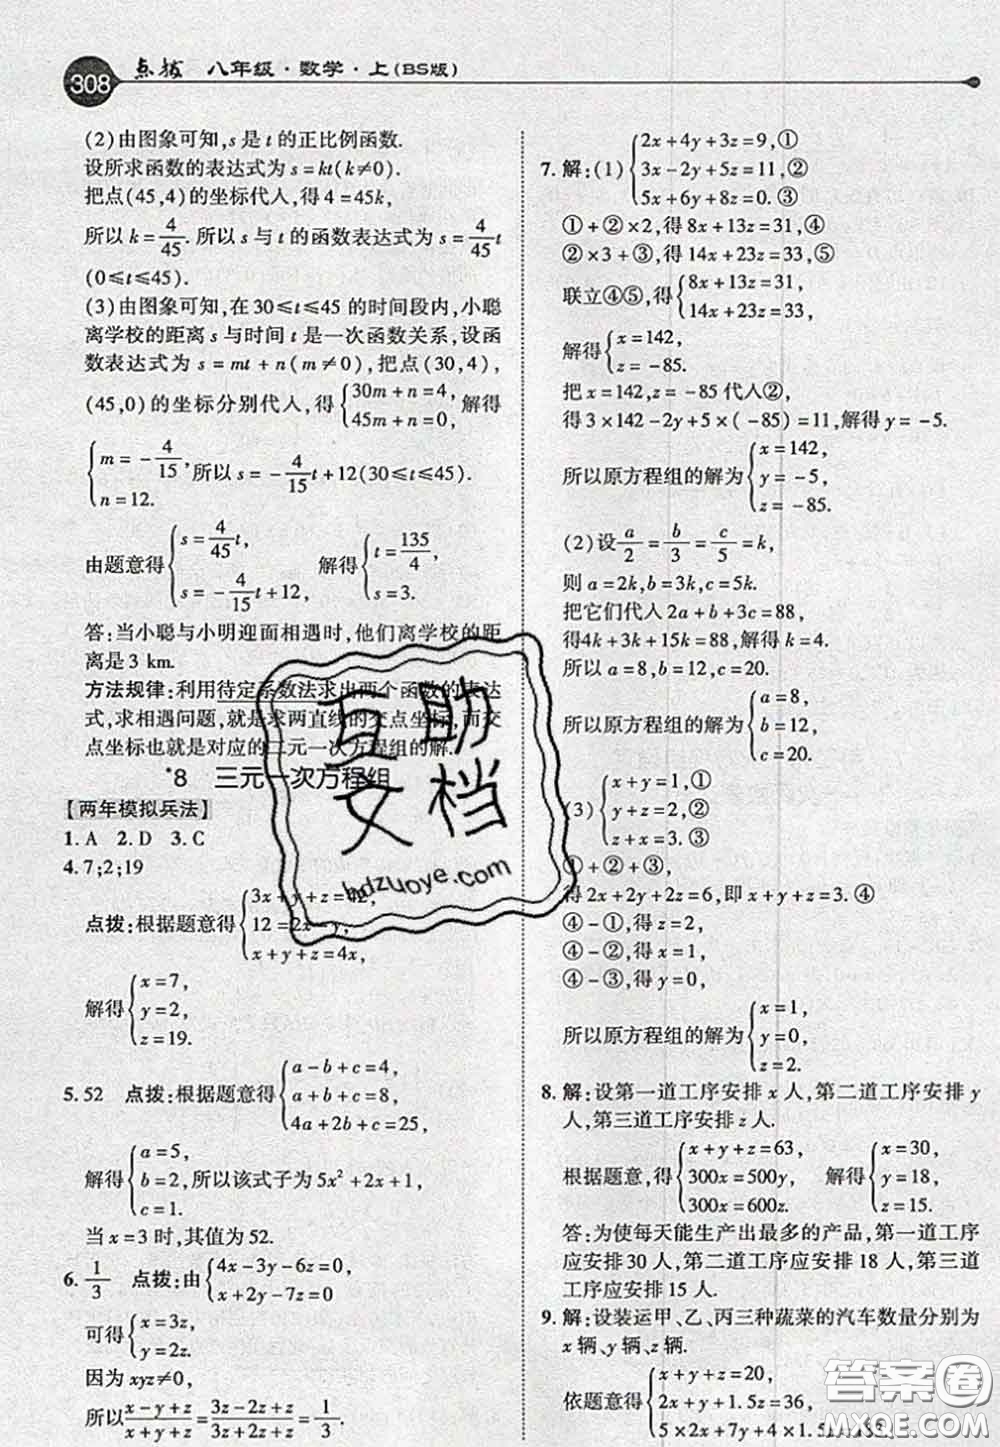 308 点拨 八年级·数学·上(BS版)
(2)由图象可知,s 是 t 的正比例函数.
设所求函数的表达式为 s=kt(k≠0).
把点(45,4)的坐标代人,得 4=45k,
所以 k=4/45. 所以 s 与 t 的函数表达式为 s=4/45 t
(0≤t≤45).
(3)由图象可知,在 30≤t≤45 的时间段内,小聪
离学校的距离 s 与时间 t 是一次函数关系,设函
数表达式为 s=mt+n(m≠0),把点(30,4),
(45,0)的坐标分别代人,得{30m+n=4, 45m+n=0, 解得
{m=-4/15, n=12. 所以 s=-4/15 t+12(30≤t≤45).
由题意得{s=4/45 t, s=-4/15 t+12, 解得{t=135/4, s=3.
答:当小聪与小明迎面相遇时,他们离学校的距
离是3 km.
方法规律:利用待定系数法求出两个函数的表达
式,求相遇问题,就是求两直线的交点坐标,而交
点坐标也就是对应的二元一次方程组的解.
*8 三元一次方程组
【两年模拟兵法】
1. A 2. D 3. C
4.7;2;19
点拨:根据题意得{3x+y+z=42, 12=2x-y, x+y+z=4x,
解得{x=7, y=2, z=19.
5.52 点拨:根据题意得{a-b+c=4, a+b+c=8, 4a+2b+c=25,
解得{a=5, b=2, c=1. 所以该式子为 5x²+2x+1,
当 x=3 时,其值为 52.
6. 1/3 点拨:由{4x-3y-6z=0, x+2y-7z=0
可得{x=3z, y=2z.
因为 xyz≠0,
所以 (x-y+z)/(x+y+z)=(3z-2z+z)/(3z+2z+z)=1/3.
7. 解:(1){2x+4y+3z=9,① 3x-2y+5z=11,② 5x+6y+8z=0.③
①+②×2,得 8x+13z=31,④
②×3+③,得 14x+23z=33,⑤
联立④⑤,得{8x+13z=31, 14x+23z=33,
解得{x=142, z=-85.
把 x=142,z=-85 代人②,
得 3×142-2y+5×(-85)=11,解得 y=-5.
所以原方程组的解为{x=142, y=-5, z=-85.
(2)设 a/2=b/3=c/5=k,
则 a=2k,b=3k,c=5k.
把它们代人 2a+b+3c=88,
得4k+3k+15k=88,解得 k=4.
所以 a=8,b=12,c=20.
所以原方程组的解为{a=8, b=12, c=20.
(3){x+y=1,① y+z=2,② z+x=3.③
①+②+③,
得 2x+2y+2z=6,即 x+y+z=3.④
④-①,得 z=2,
④-②,得 x=1,
④-③,得 y=0,
所以原方程组的解为{x=1, y=0, z=2.
8. 解:设第一道工序安排 x 人,第二道工序安排 y
人,第三道工序安排 z 人.
根据题意,得{x+y+z=63, 300x=500y, 300x=600z. 解得{x=30, y=18, z=15.
答:为使每天能生产出最多的产品,第一道工序
应安排 30 人,第二道工序应安排 18 人,第三道
工序应安排 15 人.
9. 解:设装运甲、乙、丙三种蔬菜的汽车数量分别为
x 辆、y 辆、z 辆.
依题意得{x+y+z=20, 2x+y+1.5z=36, 5×2x+7y+4×1.5z=183,
互助
文档
bdzuoye.com
答案圈
MXQE.COM